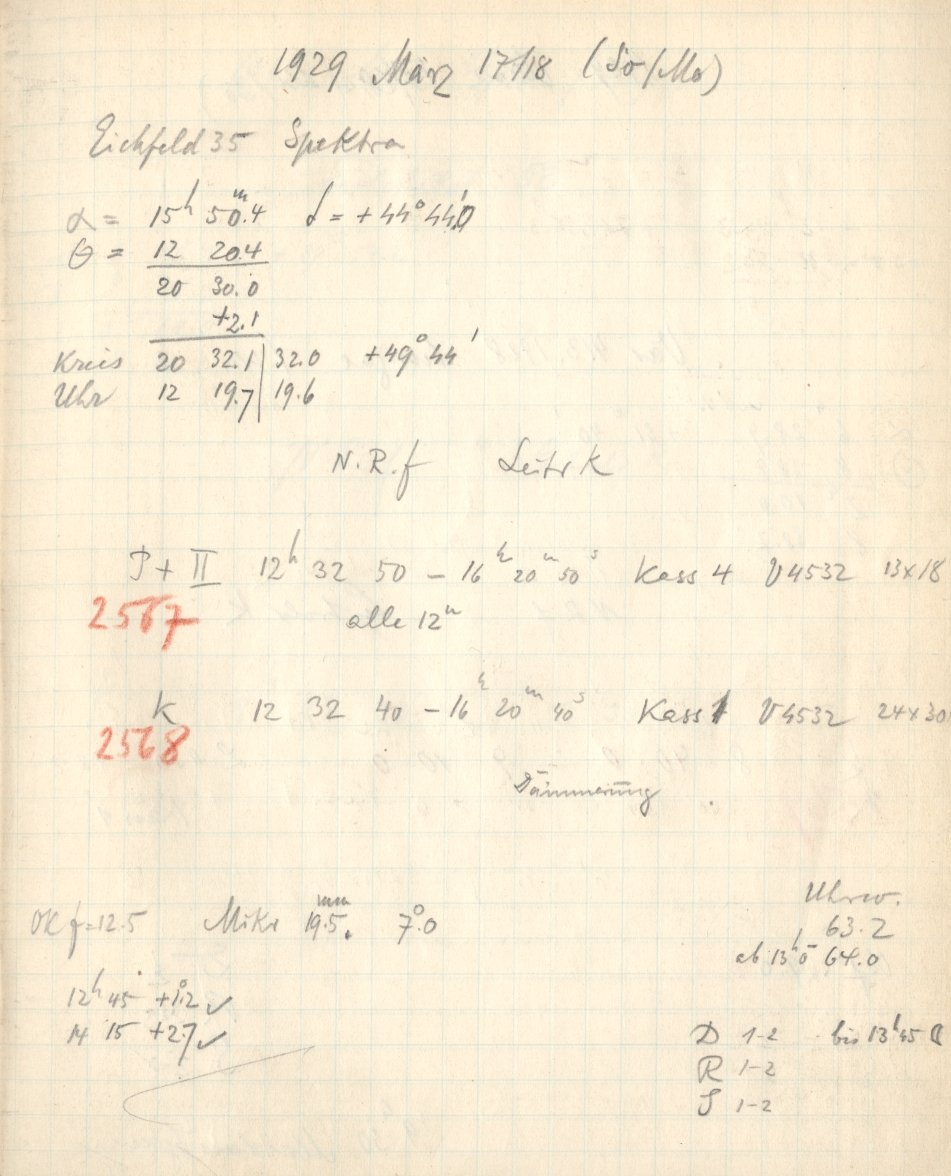 1929 März 17/18 (So/Mo)
Eichfeld 35 Spektra
α = 15h 50m.4 δ = +44° 44'
θ = 12 20.4
20 30.0
+2.1
Kreis 20 32.1 | 32.0 +49° 44'
Uhr 12 19.7 | 19.6
N.R.f Leitr K
P + II 12h 32 50 – 16h 20m 50s Kass 4 V4532 13x18
2567
alle 12m
K 12 32 40 – 16h 20m 40s Kass 1 V4532 24x30
2568
Dämmerung
Uhrw.
OK f=12.5 Mikr 19.5mm 7°.0
63.2
ab 13h 0 64.0
12h 45 +1°.2 ✓
14 15 +2.7 ✓
D 1-2 bis 13h 45 ☾
R 1-2
S 1-2